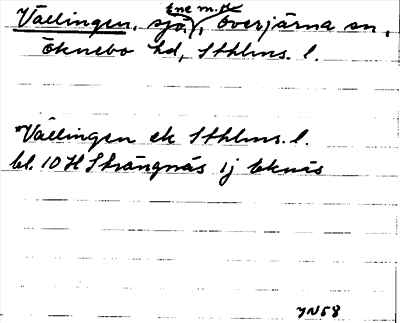 Ene m. fl.
Vällingen, sjö, Överjärna sn,
Öknebo hd, Sthlms. l.
*Vällingen ek Sthlms. l.
bl. 10 H Strängnäs ij
YN58